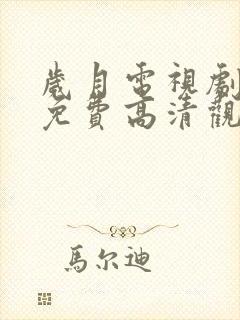 歲月電視劇
免費高清觀
馬尔迪